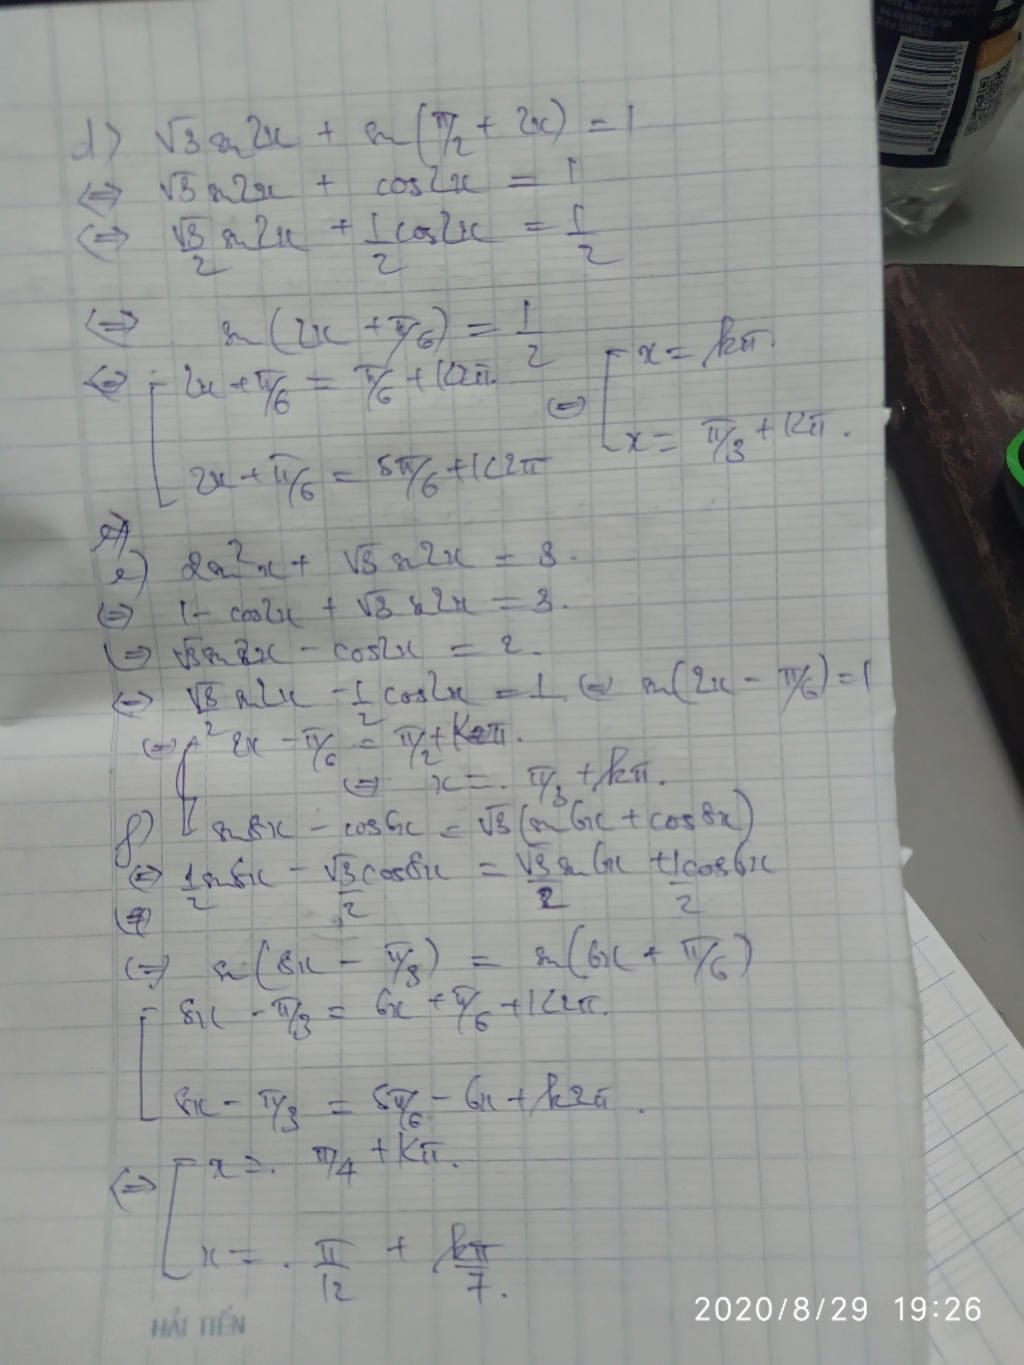 d) √3 sin2x + sin(π/2 + 2x) = 1
⇔ √3 sin2x + cos2x = 1
⇔ √3/2 sin2x + 1/2 cos2x = 1/2
⇔ sin(2x + π/6) = 1/2
⇔ [ 2x + π/6 = π/6 + k2π ⇔ [ x = kπ.
2x + π/6 = 5π/6 + k2π x = π/3 + kπ.
e) 2sin²x + √3 sin2x = 3.
⇔ 1 - cos2x + √3 sin2x = 3.
⇔ √3 sin2x - cos2x = 2.
⇔ √3/2 sin2x - 1/2 cos2x = 1 ⇔ sin(2x - π/6) = 1
⇔ 2x - π/6 = π/2 + k2π.
⇔ x = π/3 + kπ.
f) sin8x - cos6x = √3(sin6x + cos8x)
⇔ 1/2 sin8x - √3/2 cos8x = √3/2 sin6x + 1/2 cos6x
⇔ sin(8x - π/3) = sin(6x + π/6)
[ 8x - π/3 = 6x + π/6 + k2π.
8x - π/3 = 5π/6 - 6x + k2π.
⇔ [ x = π/4 + kπ.
x = π/12 + kπ/7.
HẢI TIẾN
2020/8/29 19:26